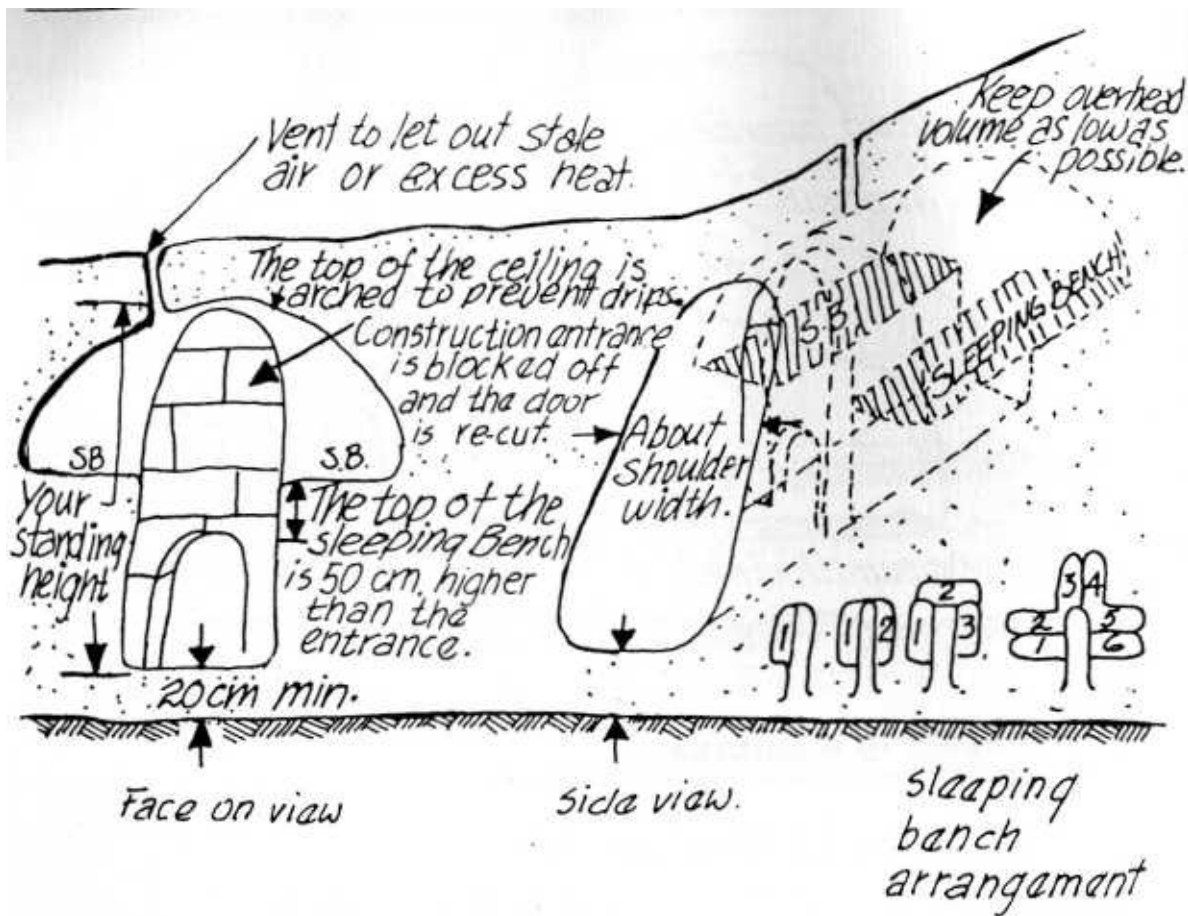 Vent to let out stale
air or excess heat.
Keep overhead
volume as low as
possible.
The top of the ceiling is
arched to prevent drips.
Construction entrance
is blocked off
and the door
is re-cut.
S.B.
SLEEPING BENCH
About
shoulder
width.
SB
S.B.
Your
standing
height
The top of the
sleeping Bench
is 50 cm. higher
than the
entrance.
20cm min.
1
1 2
1 2 3
1 2 3 4 5 6
Face on view
Side view.
sleeping
bench
arrangement